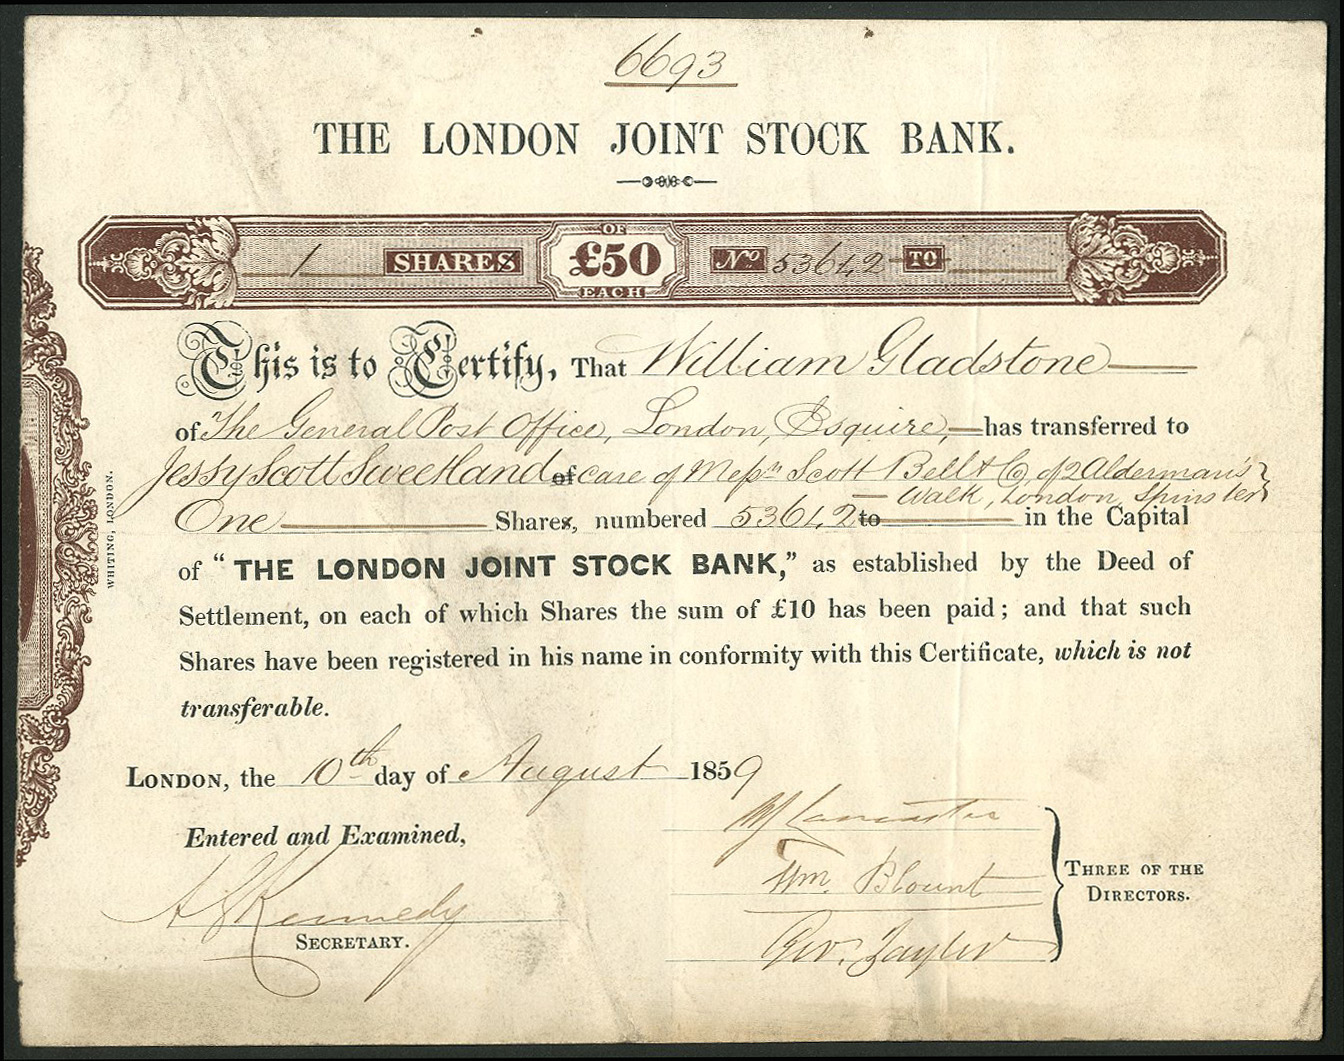 6693
THE LONDON JOINT STOCK BANK.
1 SHARES OF £50 EACH No 53642 TO
This is to Certify, That William Gladstone
of The General Post Office, London, Esquire, has transferred to
Jessy Scott Sweetland of care of Messrs Scott Bell & Co, of 2 Alderman's
Walk, London, Spinster
One Shares, numbered 53642 to in the Capital
of "THE LONDON JOINT STOCK BANK," as established by the Deed of
Settlement, on each of which Shares the sum of £10 has been paid; and that such
Shares have been registered in his name in conformity with this Certificate, which is not
transferable.
LONDON, the 10th day of August 1859
Entered and Examined,
Lancaster
Wm. Blount
THREE OF THE
DIRECTORS.
Kennedy
SECRETARY.
Geo. Tayler
WHITING, LONDON.